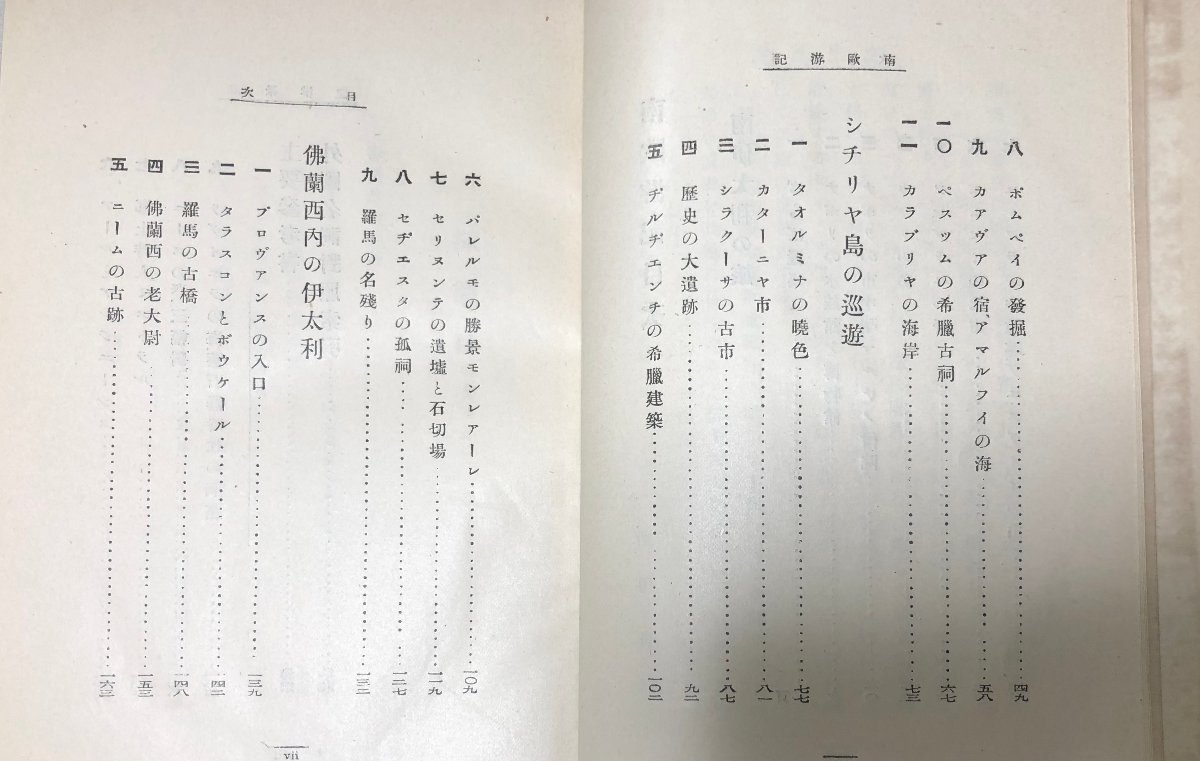 南歐游記
八 ポムペイの發掘 四九
九 カアヴアの宿、アマルフイの海 五八
一〇 ペスツムの希臘古祠 六七
一一 カラブリヤの海岸 七三
シチリヤ島の巡遊
一 タオルミナの曉色 七七
二 カターニヤ市 八一
三 シラクーサの古市 八七
四 歷史の大遺跡 九二
五 ヂルヂエンチの希臘建築 一〇二
目次
六 パレルモの勝景モンレアーレ 一〇九
七 セリヌンテの遺墟と石切場 一一九
八 セヂエスタの孤祠 一二七
九 羅馬の名殘り 一三二
佛蘭西內の伊太利
一 プロヴアンスの入口 一三九
二 タラスコンとボウケール 一四二
三 羅馬の古橋 一四八
四 佛蘭西の老大尉 一五三
五 ニームの古跡 一六三
vii